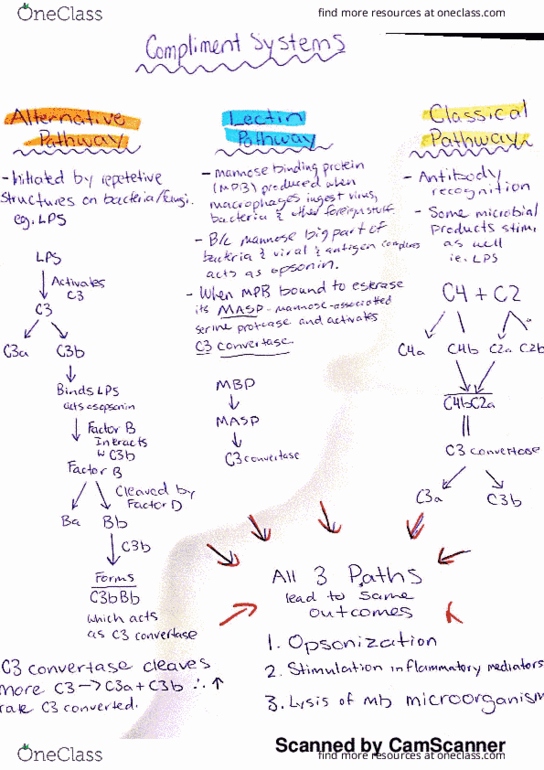 OneClass
find more resources at oneclass.com
Compliment Systems
Alternative
Pathway
- Initiated by repetetive
structures on bacteria/fungi.
eg. LPS
LPS
Activates
C3
C3
C3a C3b
Binds LPS
acts as opsonin
Factor B
Interacts
w C3b
Factor B
Cleaved by
Factor D
Ba Bb
C3b
Forms
C3bBb
which acts
as C3 convertase
C3 convertase cleaves
more C3 → C3a + C3b ∴ ↑
rate C3 converted.
Lectin
Pathway
- mannose binding protein
(MPB) produced when
macrophages ingest virus,
bacteria & other foreign stuff.
- B/c mannose big part of
bacteria & viral & antigen complexes
acts as opsonin.
- When MPB bound to esterase
its MASP - mannose-associated
serine protease and activates
C3 convertase.
MBP
MASP
C3 convertase
Classical
Pathway
- Antibody
recognition
- Some microbial
products stim.
as well
ie. LPS
C4 + C2
C4a C4b C2a C2b
C4bC2a
C3 convertase
C3a C3b
All 3 Paths
lead to same
outcomes
1. Opsonization
2. Stimulation inflammatory mediators
3. Lysis of mb microorganism
Scanned by CamScanner
OneClass
find more resources at oneclass.com